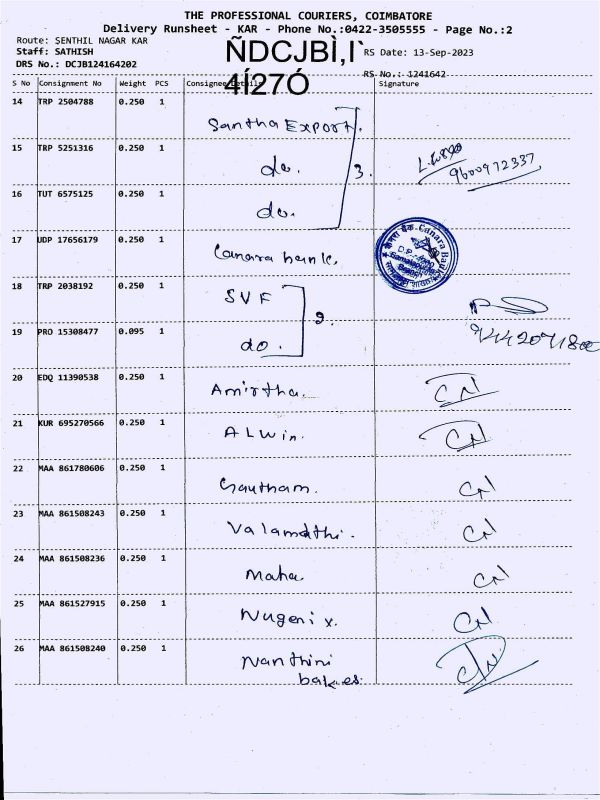 THE PROFESSIONAL COURIERS, COIMBATORE
Delivery Runsheet - KAR - Phone No.:0422-3505555 - Page No.:2
Route: SENTHIL NAGAR KAR
Staff: SATHISH
ÑDCJBÌ,Ï`
RS Date: 13-Sep-2023
DRS No.: DCJB124164202
4Í27Ó
RS No.: 1241642
S No Consignment No Weight PCS Consignee Details Signature
14 TRP 2504788 0.250 1 Santha Export.
15 TRP 5251316 0.250 1 do. 3. 9600972337
16 TUT 6575125 0.250 1 do.
17 UDP 17656179 0.250 1 Canara bank. Canara Bank
18 TRP 2038192 0.250 1 SVF
19 PRO 15308477 0.095 1 do. 2.
20 EDQ 11390538 0.250 1 Amirtha.
21 KUR 695270566 0.250 1 ALwin.
22 MAA 861780606 0.250 1 Gautham.
23 MAA 861508243 0.250 1 Valamathi.
24 MAA 861508236 0.250 1 Maha.
25 MAA 861527915 0.250 1 Nugenix.
26 MAA 861508240 0.250 1 Nanthini
bakes.